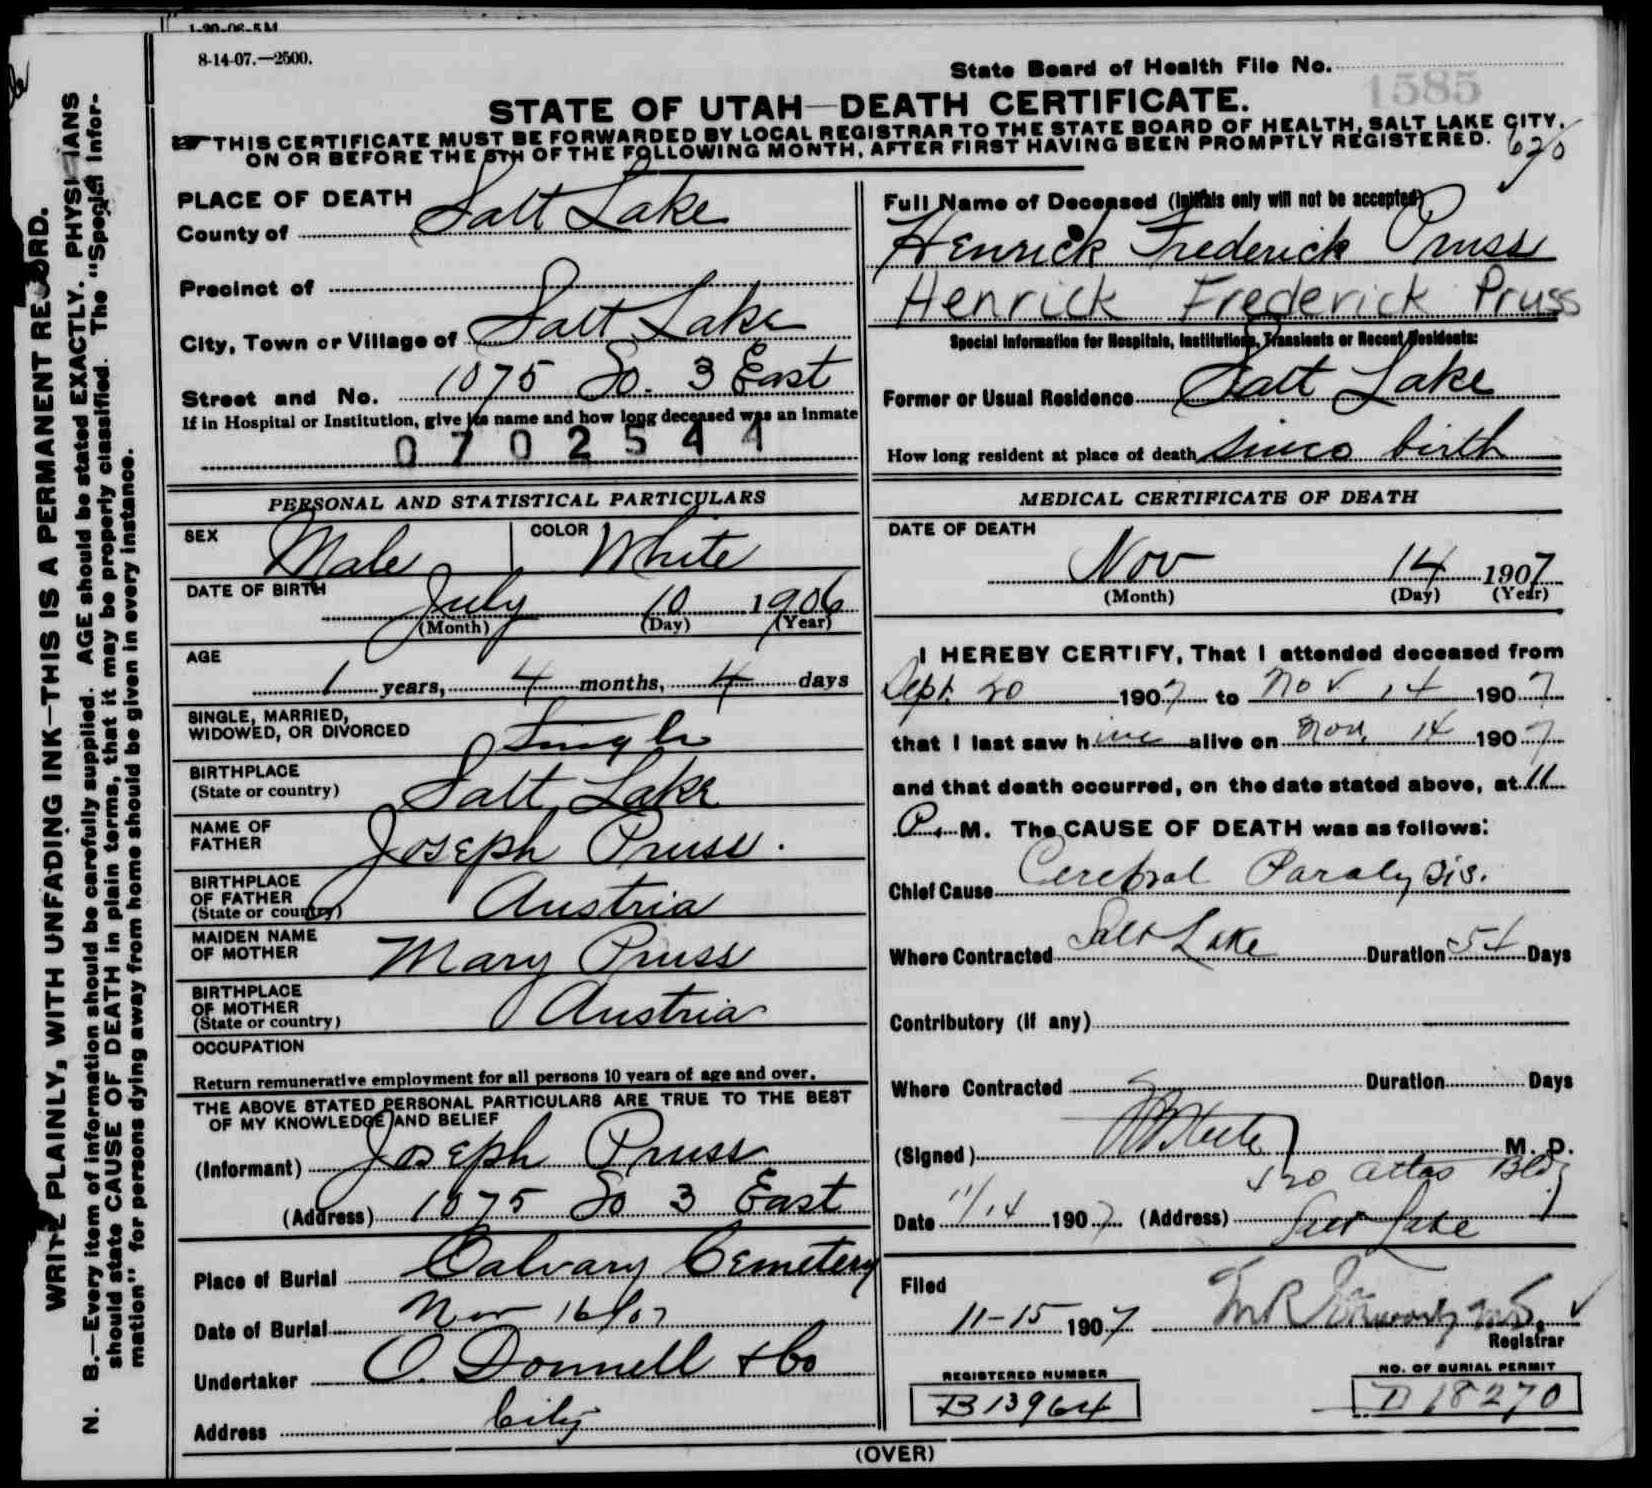 1-20-06-5M
8-14-07.—2500.
State Board of Health File No. 1585
STATE OF UTAH—DEATH CERTIFICATE.
THIS CERTIFICATE MUST BE FORWARDED BY LOCAL REGISTRAR TO THE STATE BOARD OF HEALTH, SALT LAKE CITY,
ON OR BEFORE THE 5TH OF THE FOLLOWING MONTH, AFTER FIRST HAVING BEEN PROMPTLY REGISTERED.
620
WRITE PLAINLY, WITH UNFADING INK—THIS IS A PERMANENT RECORD.
N. B.—Every item of information should be carefully supplied. AGE should be stated EXACTLY. PHYSICIANS
should state CAUSE OF DEATH in plain terms, that it may be properly classified. The "Special Infor-
mation" for persons dying away from home should be given in every instance.
PLACE OF DEATH
County of Salt Lake
Precinct of
City, Town or Village of Salt Lake
Street and No. 1075 So. 3 East
If in Hospital or Institution, give its name and how long deceased was an inmate
0702544
PERSONAL AND STATISTICAL PARTICULARS
SEX Male COLOR White
DATE OF BIRTH July 10 1906
(Month) (Day) (Year)
AGE
1 years, 4 months, 4 days
SINGLE, MARRIED,
WIDOWED, OR DIVORCED Single
BIRTHPLACE
(State or country) Salt Lake
NAME OF
FATHER Joseph Pruss.
BIRTHPLACE
OF FATHER
(State or country) Austria
MAIDEN NAME
OF MOTHER Mary Pruss
BIRTHPLACE
OF MOTHER
(State or country) Austria
OCCUPATION
Return remunerative employment for all persons 10 years of age and over.
THE ABOVE STATED PERSONAL PARTICULARS ARE TRUE TO THE BEST
OF MY KNOWLEDGE AND BELIEF
(Informant) Joseph Pruss
(Address) 1075 So 3 East
Place of Burial Calvary Cemetery
Date of Burial Nov 16/07
Undertaker O. Donnell & Co
Address City
Full Name of Deceased (Initials only will not be accepted)
Henrick Frederick Pruss
Henrick Frederick Pruss
Special Information for Hospitals, Institutions, Transients or Recent Residents:
Former or Usual Residence Salt Lake
How long resident at place of death since birth
MEDICAL CERTIFICATE OF DEATH
DATE OF DEATH
Nov 14 1907
(Month) (Day) (Year)
I HEREBY CERTIFY, That I attended deceased from
Sept. 20 1907 to Nov 14 1907
that I last saw him alive on Nov, 14 1907
and that death occurred, on the date stated above, at 11
P. M. The CAUSE OF DEATH was as follows:
Chief Cause Cerebral Paralysis.
Where Contracted Salt Lake Duration 54 Days
Contributory (if any)
Where Contracted Duration Days
(Signed) M. D.
420 Atlas Bldg
Date 11/14 1907 (Address) Salt Lake
Filed
11-15 1907
Registrar
REGISTERED NUMBER
B13964
NO. OF BURIAL PERMIT
B 18270
(OVER)